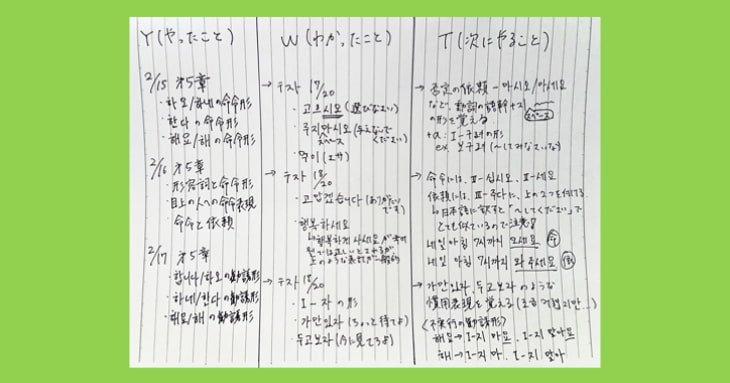 Y (やったこと)
2/15 第5章
・하오/하네の命令形
・한다の命令形
・해요/해の命令形
2/16 第5章
・形容詞と命令形
・目上の人への命令表現
・命令と依頼
2/17 第5章
・합니다/하오の勧誘形
・하네/한다の勧誘形
・해요/해の勧誘形
W (わかったこと)
→ テスト 17/20
・고르시오 (選びなさい)
・주지 마시오 (与えないで
スペース ください)
・먹이 (エサ)
→ テスト 18/20
・고맙겠습니다 (ありがたい
です)
・행복하세요
↳ 행복하게 사세요が
では正しいとされるが
上のような表現が一般的
→ テスト 18/20
・I-자の形
・가만있자 (ちょっと待てよ)
・두고보자 (今に見てろよ)
T (次にやること)
→ 否定の依頼 - 마시오/마세요
など、動詞の語幹+지
の形を覚える スペース
+α: I-구려の形
ex. 보구려 (~してみなさいな)
→ 命令には、II-십시오、II-세요
依頼には、III-주다に、上の2つを付ける
↳ 日本語に訳すと「~してください」で
とても似ているので注意!!
내일 아침 7시까지 오세요 命
내일 아침 7시까지 와 주세요 依
→ 가만있자、두고보자のような
慣用表現を覚える
(不実行の勧誘形)
해요→I-지 마요、I-지 말아요
해→I-지 마、I-지 말아